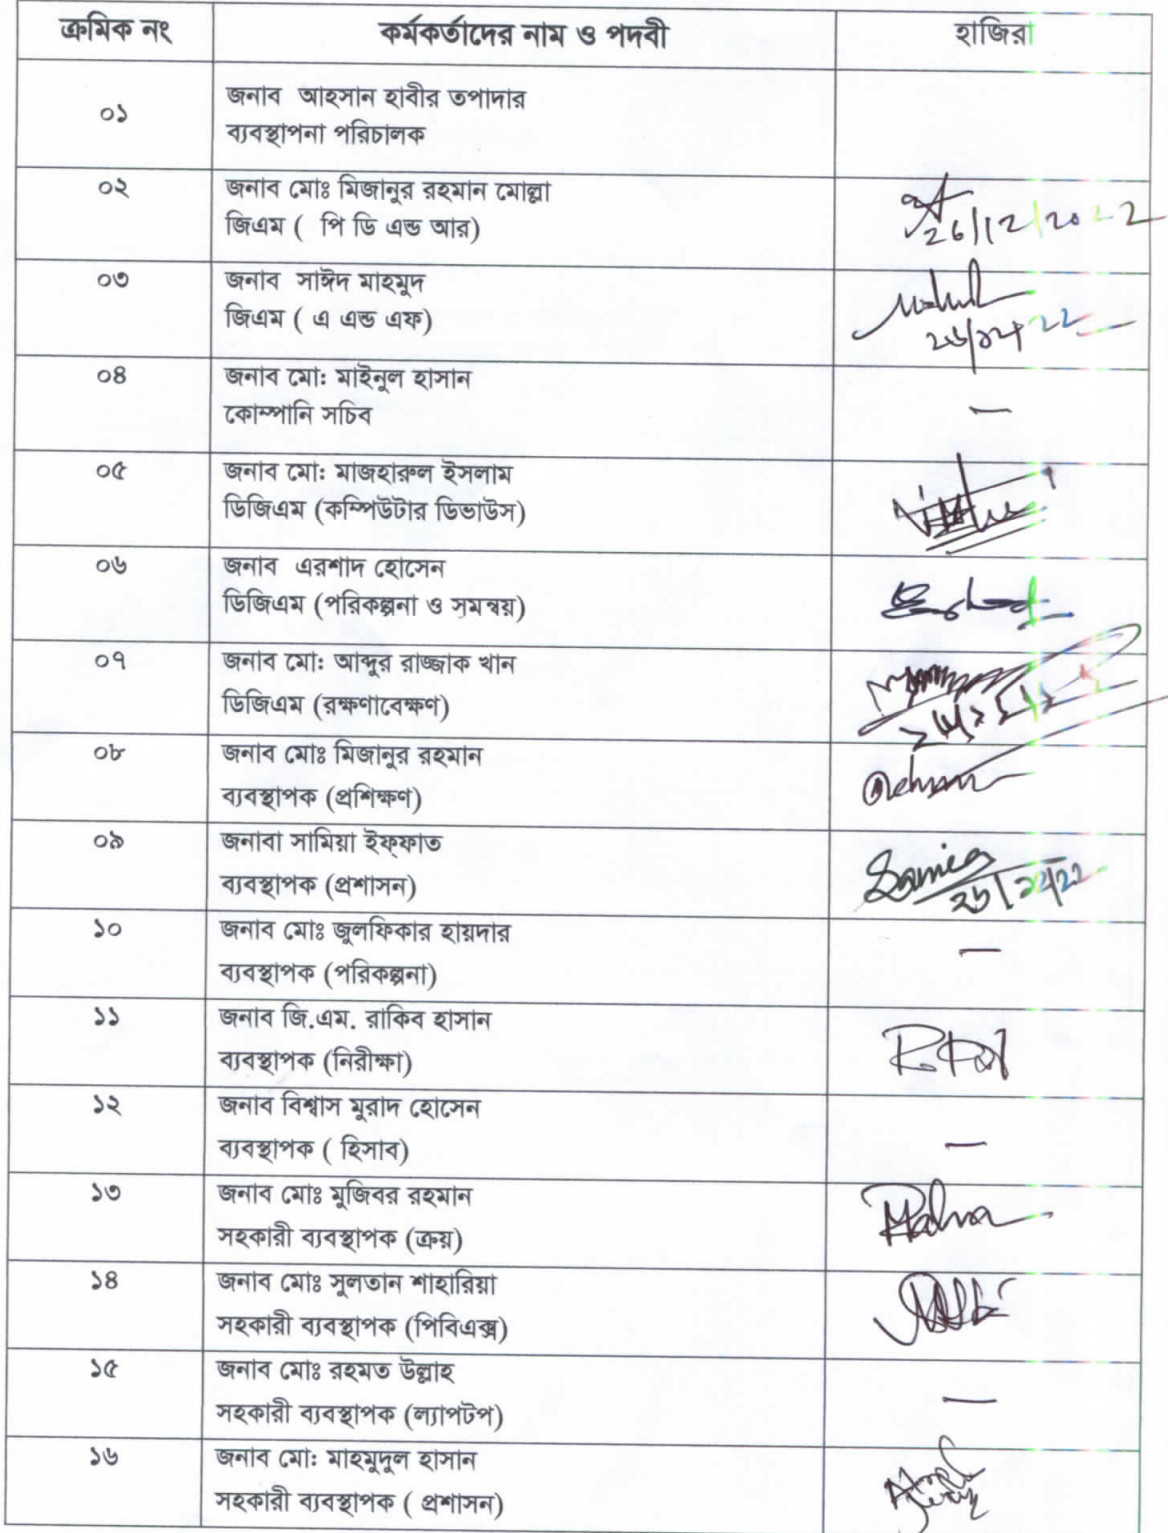 ক্রমিক নং কর্মকর্তাদের নাম ও পদবী হাজিরা
০১ জনাব আহসান হাবীর তপাদার
ব্যবস্থাপনা পরিচালক
০২ জনাব মোঃ মিজানুর রহমান মোল্লা
জিএম ( পি ডি এন্ড আর) 26/12/2022
০৩ জনাব সাঈদ মাহমুদ
জিএম ( এ এন্ড এফ)
০৪ জনাব মো: মাইনুল হাসান
কোম্পানি সচিব —
০৫ জনাব মো: মাজহারুল ইসলাম
ডিজিএম (কম্পিউটার ডিভাউস)
০৬ জনাব এরশাদ হোসেন
ডিজিএম (পরিকল্পনা ও সমন্বয়)
০৭ জনাব মো: আব্দুর রাজ্জাক খান
ডিজিএম (রক্ষণাবেক্ষণ)
০৮ জনাব মোঃ মিজানুর রহমান
ব্যবস্থাপক (প্রশিক্ষণ)
০৯ জনাবা সামিয়া ইফ্ফাত
ব্যবস্থাপক (প্রশাসন) Samia
১০ জনাব মোঃ জুলফিকার হায়দার
ব্যবস্থাপক (পরিকল্পনা) —
১১ জনাব জি.এম. রাকিব হাসান
ব্যবস্থাপক (নিরীক্ষা)
১২ জনাব বিশ্বাস মুরাদ হোসেন
ব্যবস্থাপক ( হিসাব) —
১৩ জনাব মোঃ মুজিবর রহমান
সহকারী ব্যবস্থাপক (ক্রয়)
১৪ জনাব মোঃ সুলতান শাহারিয়া
সহকারী ব্যবস্থাপক (পিবিএক্স)
১৫ জনাব মোঃ রহমত উল্লাহ
সহকারী ব্যবস্থাপক (ল্যাপটপ) —
১৬ জনাব মো: মাহমুদুল হাসান
সহকারী ব্যবস্থাপক ( প্রশাসন)